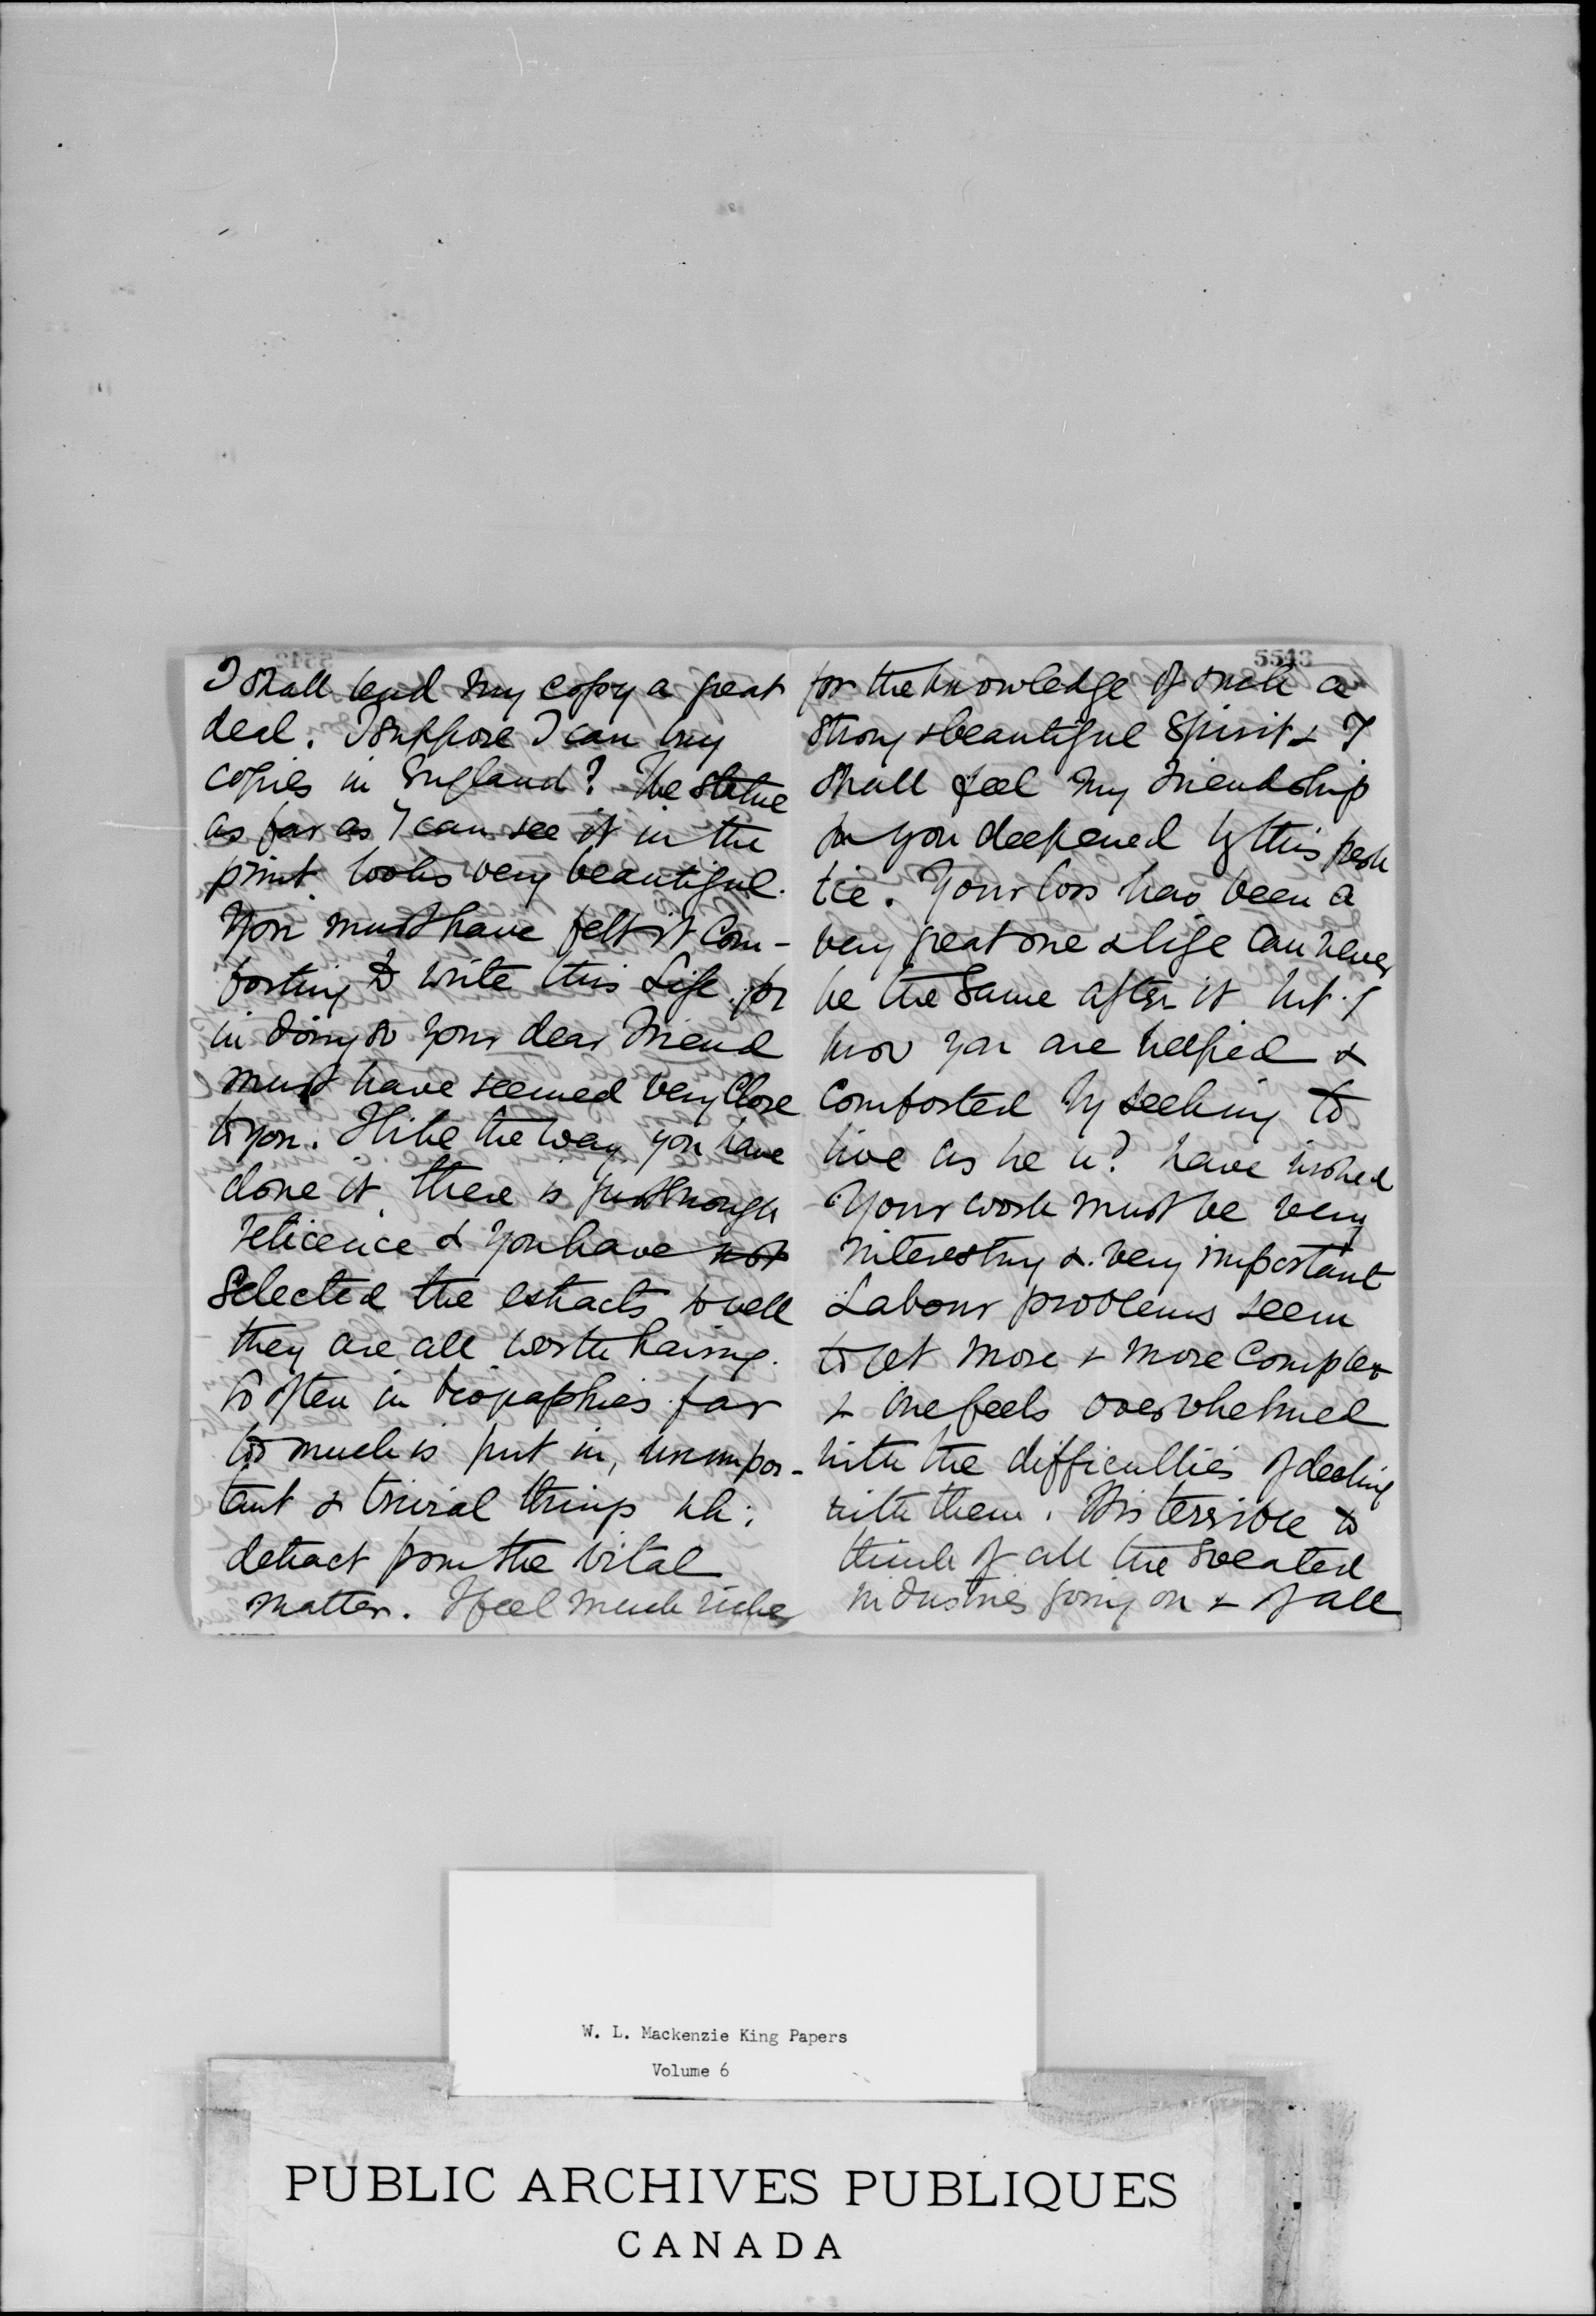 I shall lend my copy a great
deal. I suppose I can buy
copies in England? The statue
as far as I can see it in the
print looks very beautiful.
You must have felt it com-
forting to write this Life for
in doing so your dear friend
must have seemed very close
to you. I like the way you have
done it, there is just enough
reticence & you have not
selected the extracts so well
they are all worth having.
So often in biographies far
too much is put in, unimpor-
tant & trivial things wh:
detract from the vital
matter. I feel much richer
5543
for the knowledge of such a
strong & beautiful spirit & I
shall feel my friendship
for you deepened by this fresh
tie. Your loss has been a
very great one & life can never
be the same after it but I
know you are helped &
comforted by seeking to
live as he wd have wished
Your work must be very
interesting & very important
Labour problems seem
to get more & more complex
& one feels overwhelmed
with the difficulties of dealing
with them. It is terrible to
think of all the sweated
industries going on & of all
W. L. Mackenzie King Papers
Volume 6
PUBLIC ARCHIVES PUBLIQUES
CANADA